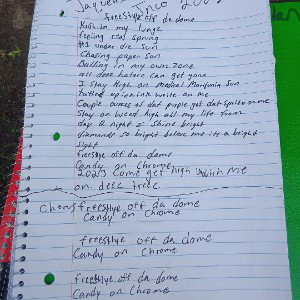 freestyle off de dome
Kushin in my lunge
feeling real spring
#1 under die sun
Chasing paper son
Balling in my own zone
all dees haters can get gone
I stay High on Medical
Rolled up ink write on me
Couple ounces of dat purple get dat Sprite on me
Stay on weed high all my life from
day & night I Shine bright
diamonds so bright believe me its a bright
sight
freestyle off da dome
Candy on Chrome
2023 Come get high with me
on deez treez
freestyle off da dome
Candy on Chrome
freestyle off de dome
Candy on Chrome
freestyle off da dome
Candy on Chrome